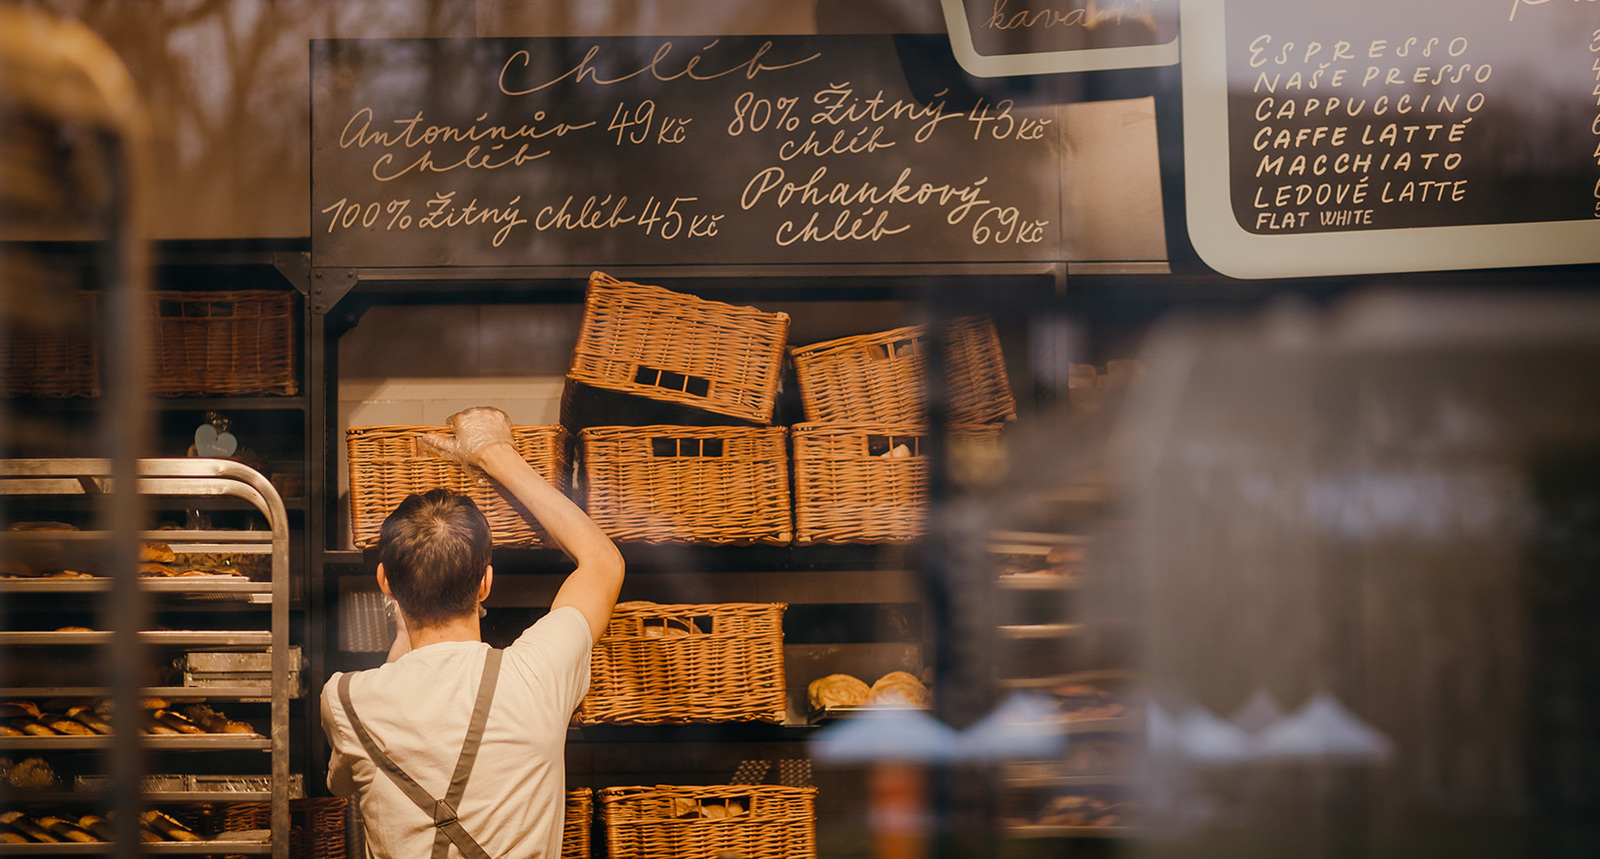 Chléb
Antonínův 49 Kč
chléb
80% Žitný 43 Kč
chléb
100% Žitný chléb 45 Kč
Pohankový
chléb 69 Kč
ESPRESSO
NAŠE PRESSO
CAPPUCCINO
CAFFE LATTÉ
MACCHIATO
LEDOVÉ LATTE
FLAT WHITE